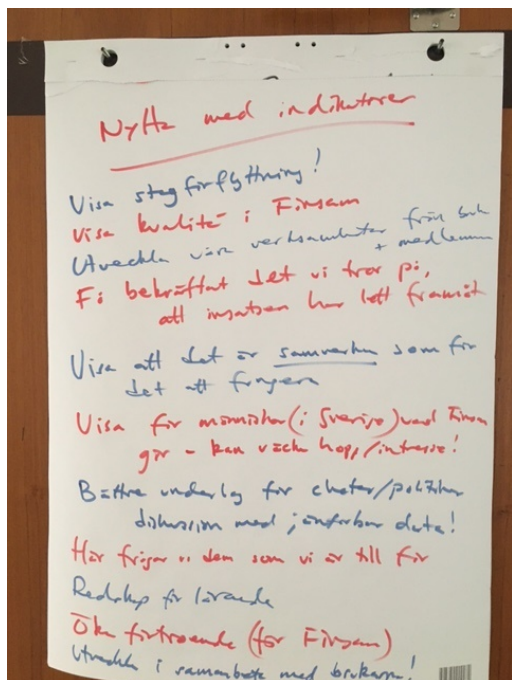 Nytta med indikatorer
Visa stegförflyttning!
Visa kvalité i Finsam
Utveckla våra verksamheter från bruk
+ medlemmar
Få bekräftat det vi tror på,
att insatsen har lett framåt
Visa att det är samverkan som får
det att fungera
Visa för människor (i Sverige) vad Finsam
gör - kan väcka hopp/intresse!
Bättre underlag för chefer/politiker
diskussion med jämförbar data!
Här frågar vi dem som vi är till för
Redskap för lärande
Öka förtroende (för Finsam)
Utveckla i samarbete med brukarna!